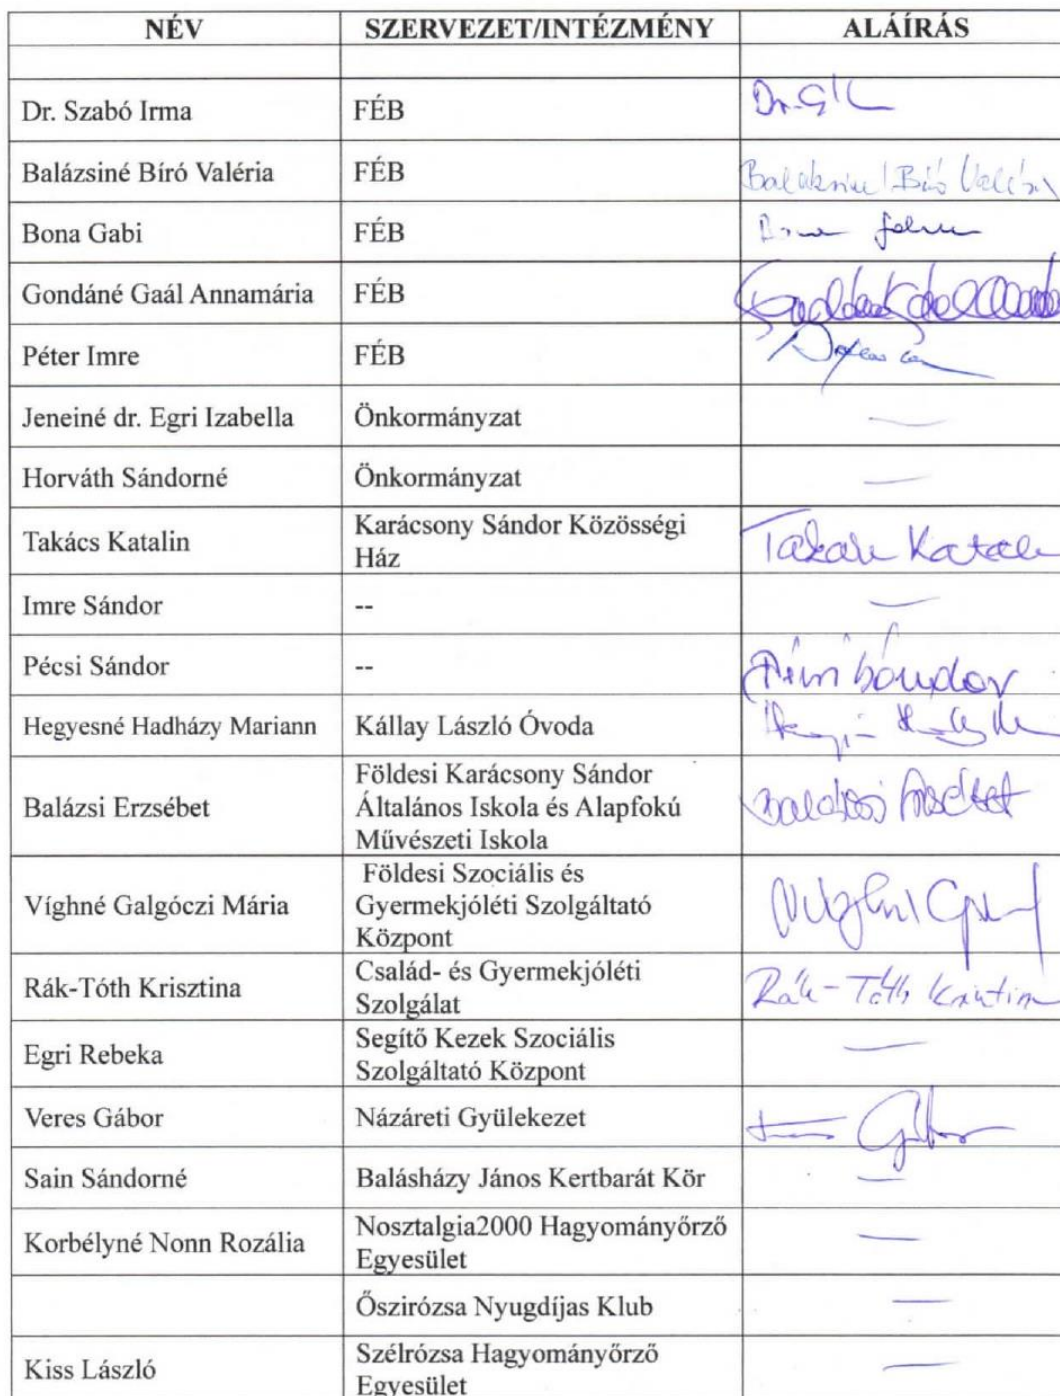 NÉV SZERVEZET/INTÉZMÉNY ALÁÍRÁS
Dr. Szabó Irma FÉB
Balázsiné Bíró Valéria FÉB Bíró
Bona Gabi FÉB
Gondáné Gaál Annamária FÉB
Péter Imre FÉB
Jeneiné dr. Egri Izabella Önkormányzat —
Horváth Sándorné Önkormányzat —
Takács Katalin Karácsony Sándor Közösségi
Ház
Imre Sándor -- —
Pécsi Sándor -- Sándor
Hegyesné Hadházy Mariann Kállay László Óvoda
Balázsi Erzsébet Földesi Karácsony Sándor
Általános Iskola és Alapfokú
Művészeti Iskola
Víghné Galgóczi Mária Földesi Szociális és
Gyermekjóléti Szolgáltató
Központ
Rák-Tóth Krisztina Család- és Gyermekjóléti
Szolgálat Rák-Tóth Krisztina
Egri Rebeka Segítő Kezek Szociális
Szolgáltató Központ —
Veres Gábor Názáreti Gyülekezet Gábor
Sain Sándorné Balásházy János Kertbarát Kör —
Korbélyné Nonn Rozália Nosztalgia2000 Hagyományőrző
Egyesület —
Őszirózsa Nyugdíjas Klub —
Kiss László Szélrózsa Hagyományőrző
Egyesület —